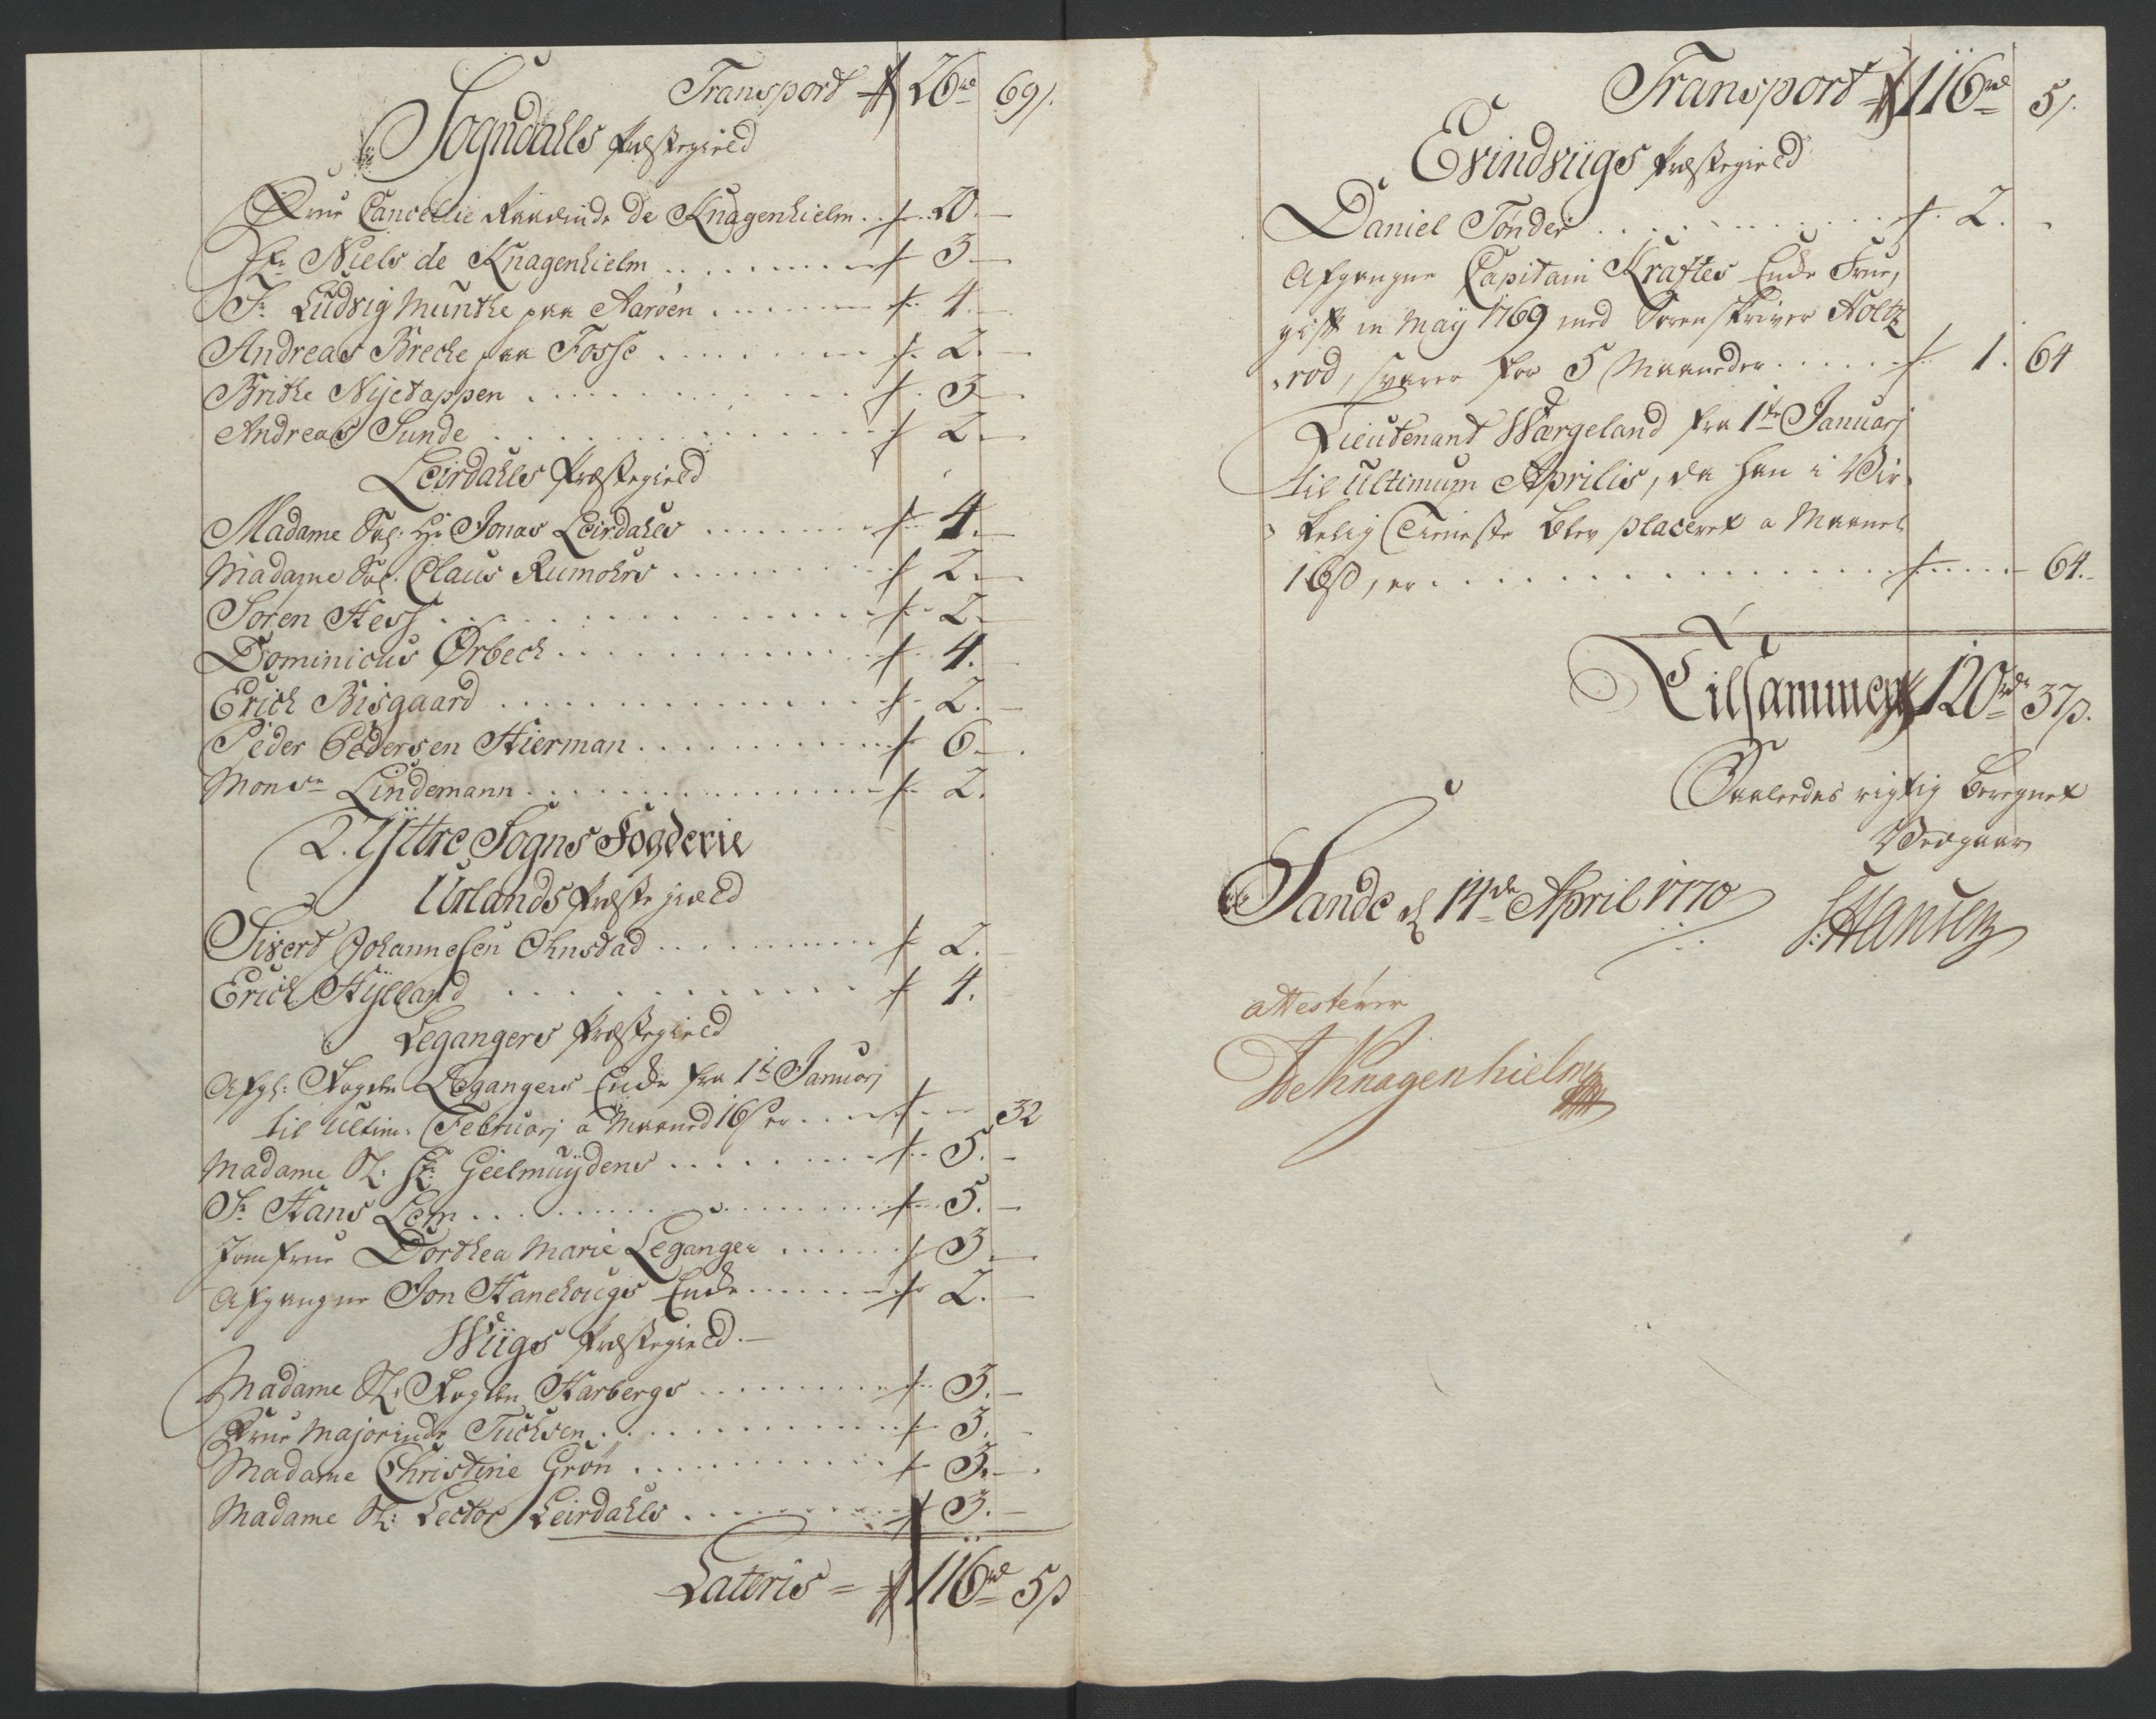 Transport 26 rd 69 s.
Sogndahls Præstegield
Frue Cancellie Raadinde de Knagenhielm . . 20. —
Hr. Niels de Knagenhielm . . . . . . . . 3 —
Sr. Ludvig Munthe paa Aaröen . . . . . . 4. —
Andreas Breche paa Fosse . . . . . . . . 2. —
Brithe Nijetappen . . . . . . . . . . 3 —
Andreas Sunde . . . . . . . . . . 2. —
Leirdahls Præstegield
Madame Sal: Hr Jonas Leirdahls . . . . . . . 4. —
Madame Sal. Claus Rumohrs . . . . . . . . 2. —
Soren Hess . . . . . . . . . . . . 2 —
Dominicus Ørbech . . . . . . . . . . 4. —
Erich Bisgaard . . . . . . . . . . . 2. —
Peder Pedersen Hierman . . . . . . . . . 6 —
Monsr Lindemann . . . . . . . . . . . 2.
2. Ÿttre Sogns Fogderie
Urlands Præstegield
Sivert Johannesen Ohnstad . . . . . . . . 2. —
Erich Hÿlland . . . . . . . . . . . 4.
Legangers Præstegield
Afg: Fogden Legangers Enke fra 1te Januarj
til Ultim: Februarj a Maaned 16 s er . . . — 32
Madame Sl: Hr: Geelmuÿdens . . . . . . . 5. —
Sr. Hans Lem . . . . . . . . . . . 5. —
Jomfrue Dorthea Marie Leganger . . . . . . 3. —
Afgangne Jon Hanehougs Enke . . . . . . . 2. —
Wiigs Præstegield. —
Madame Sl: Fogden Harbergs . . . . . . . . 3. —
Frue Majorinde Tuchsen . . . . . . . . . 3. —
Madame Christine Grön . . . . . . . . . 3. —
Madame Sl: Lector Leirdahls . . . . . . . 3. —
Lateris = 116 rd 5 s
Transport 116 rd 5 s.
Evindviigs Præstegield
Daniel Tønder . . . . . . . . . . 2. —
Afgangne Capitain Kraftes Enke Frue,
gift in Maÿ 1769 med Sorenskriver Holtz
rod, svarer for 5 Maaneder . . . . . 1. 64
Lieutenant Wærgeland fra 1te Januarj
til Ultimum Aprilis, da han i Vir-
kelig Tieneste blev placeret a Maaned
16 s, er . . . . . . . . . . . . 64. —
Tilsammen 120 rdr 37 s.
Saaledes rigtig beregnet
Vedgaar
Sande d 14de April 1770
S: Hansen
attesterer
De Knagenhielm